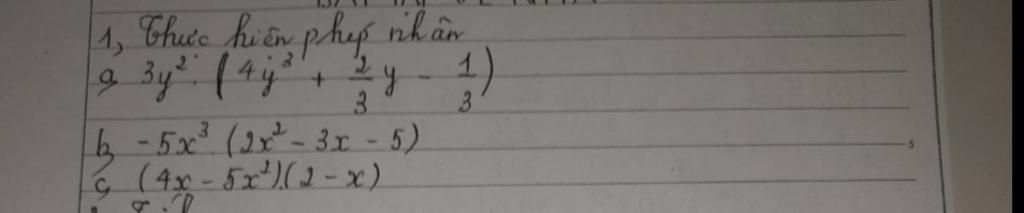 1, Thực hiện phép nhân
a, 3y². (4y³ + 2/3 y - 1/3)
b, -5x³ (2x² - 3x - 5)
c, (4x - 5x²).(2 - x)